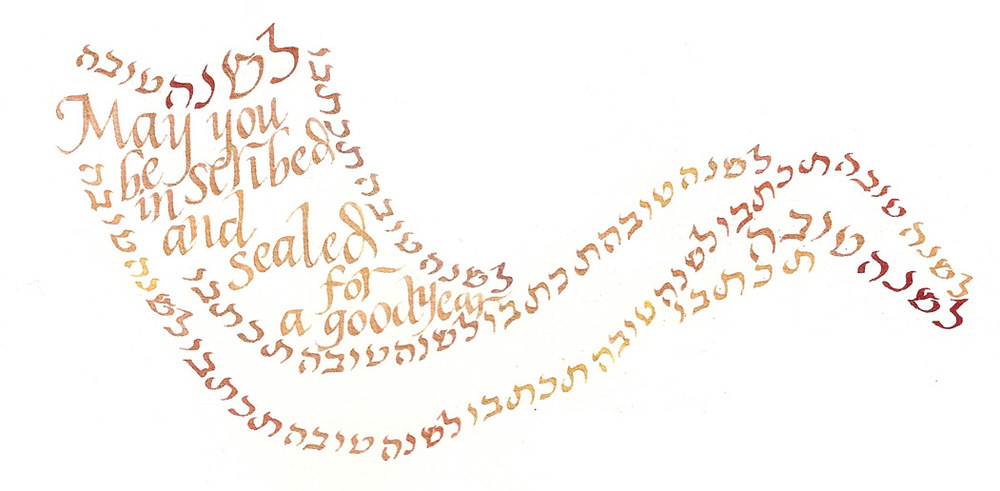 לשנה טובה
May you
be inscribed
and
sealed
for
a good year
לשנה טובה תכתבו
לשנה טובה תכתבו לשנה טובה תכתבו
לשנה טובה תכתבו לשנה טובה תכתבו לשנה טובה תכתבו לשנה טובה
לשנה טובה תכתבו